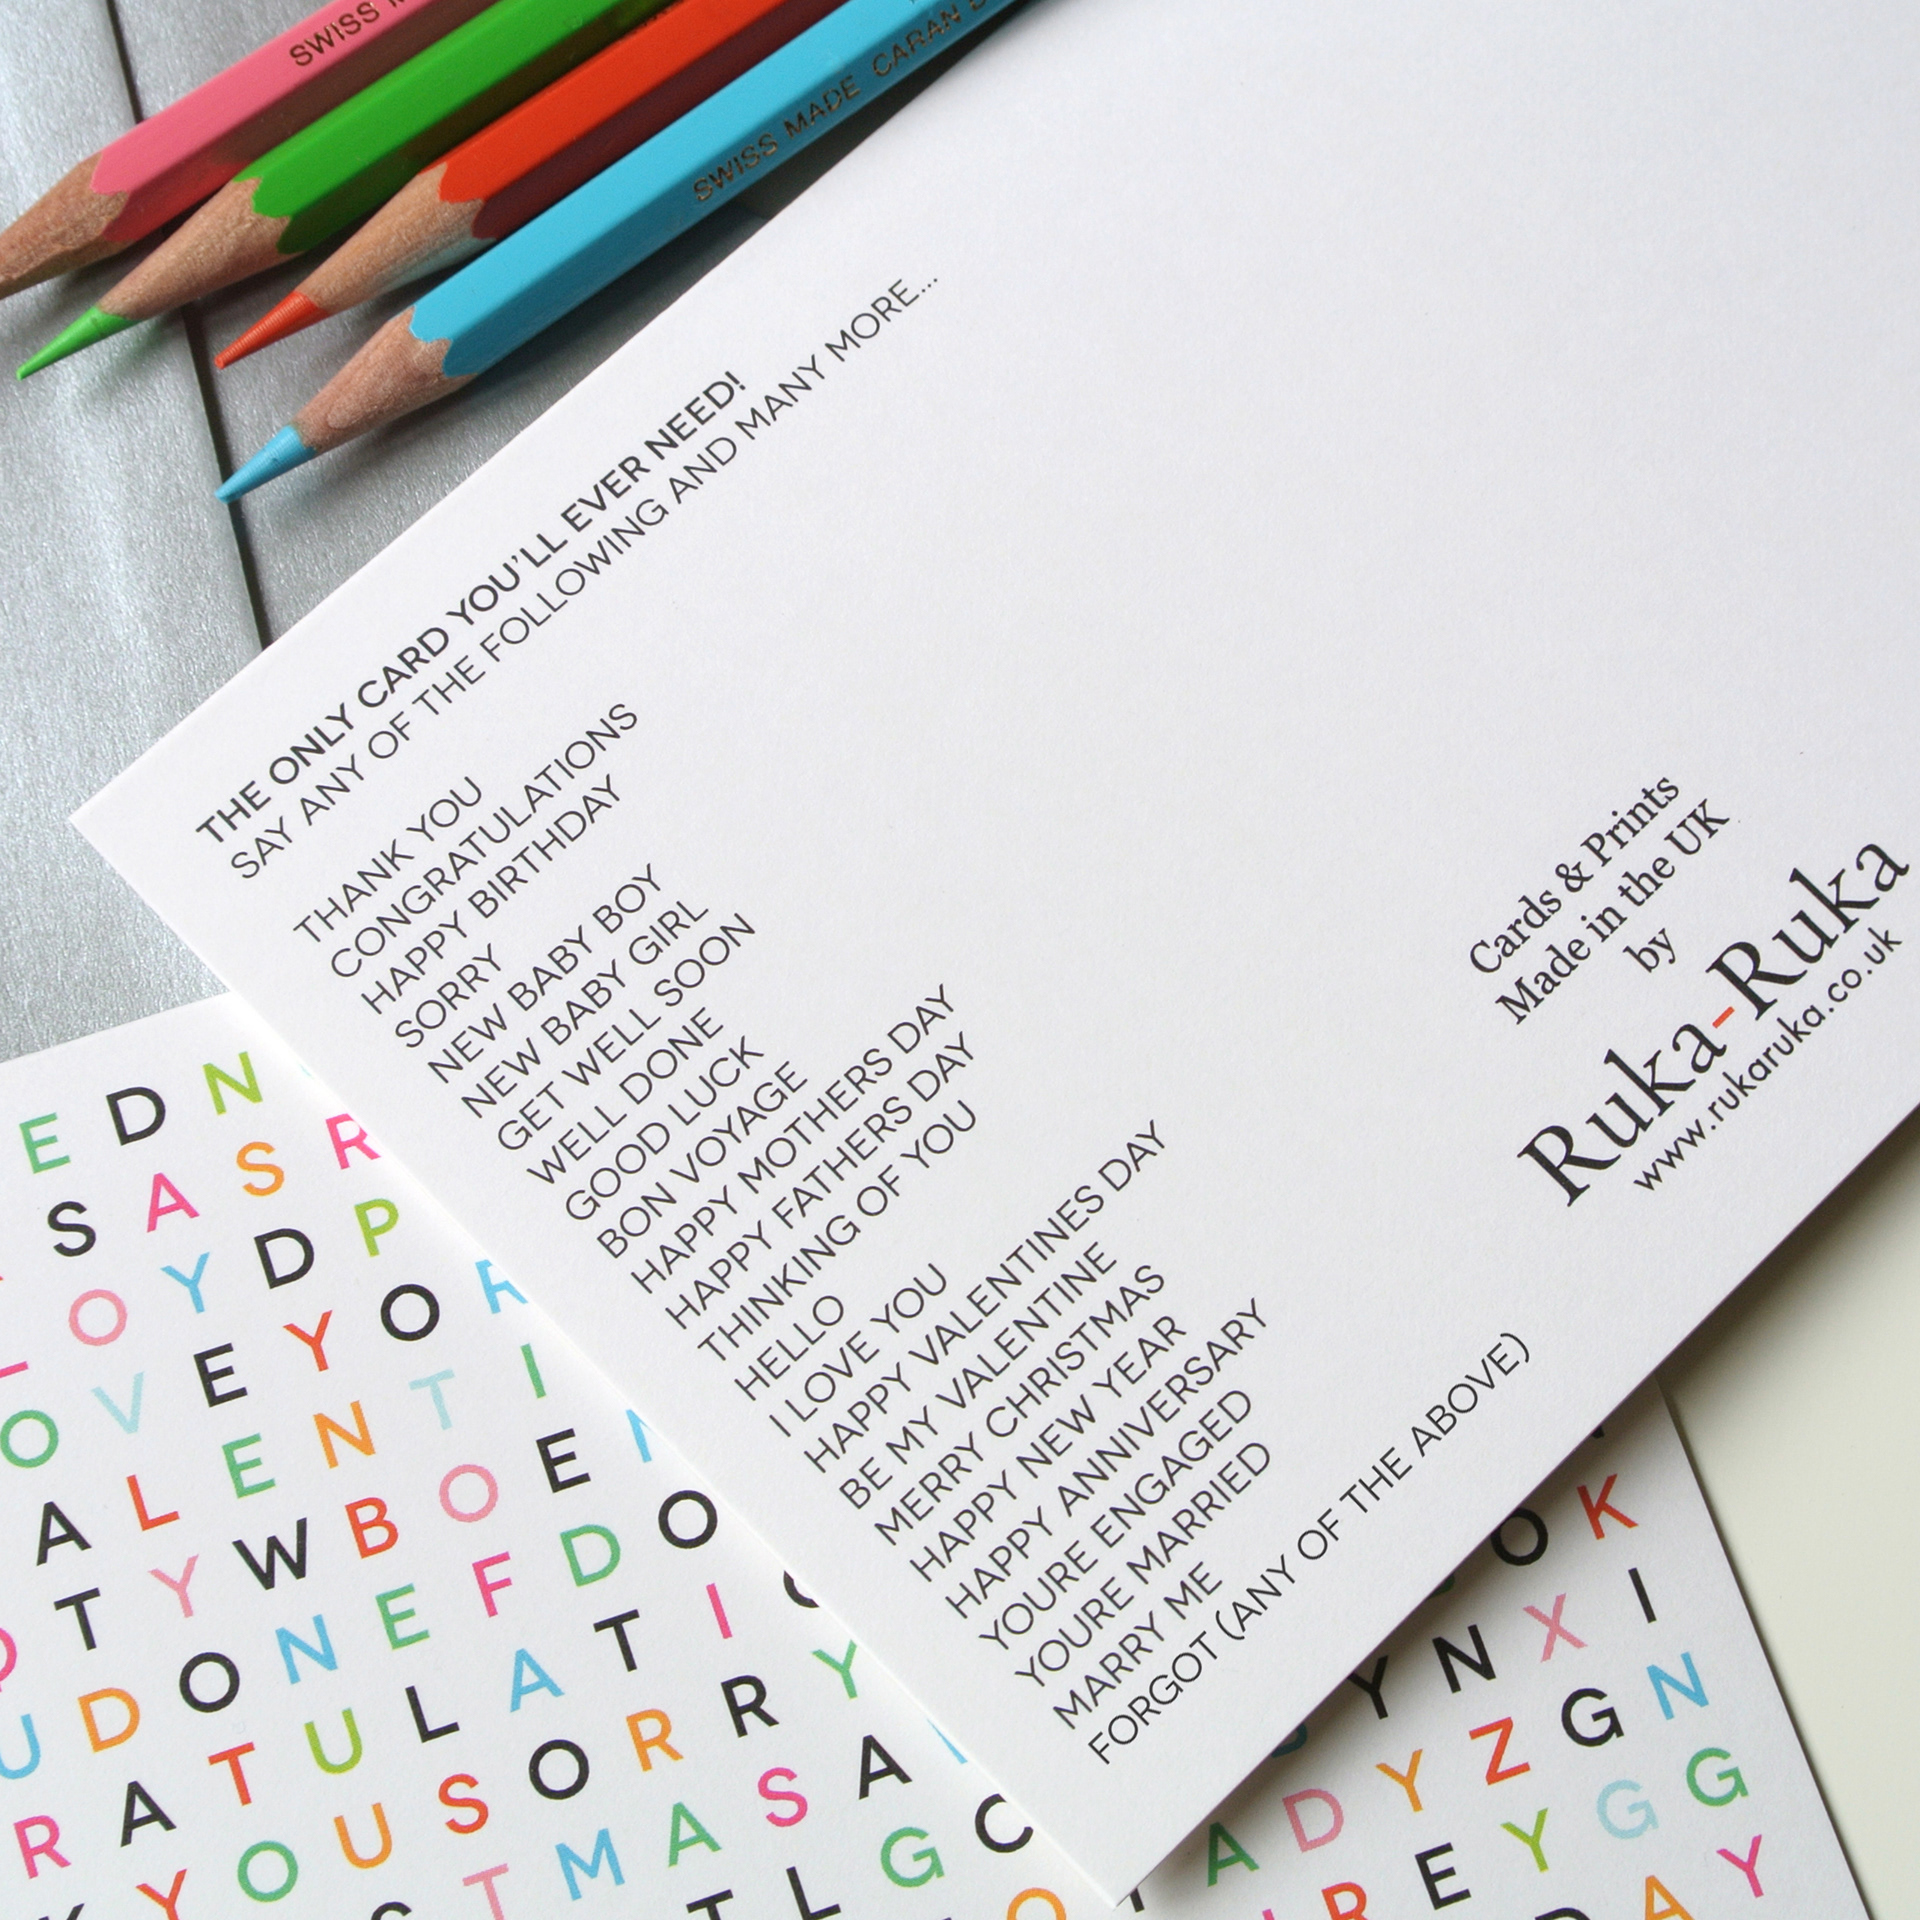 SWISS
SWISS MADE CARAN
THE ONLY CARD YOU'LL EVER NEED!
SAY ANY OF THE FOLLOWING AND MANY MORE...
THANK YOU
CONGRATULATIONS
HAPPY BIRTHDAY
SORRY
NEW BABY BOY
NEW BABY GIRL
GET WELL SOON
WELL DONE
GOOD LUCK
BON VOYAGE
HAPPY MOTHERS DAY
HAPPY FATHERS DAY
THINKING OF YOU
HELLO
I LOVE YOU
HAPPY VALENTINES DAY
BE MY VALENTINE
MERRY CHRISTMAS
HAPPY NEW YEAR
HAPPY ANNIVERSARY
YOURE ENGAGED
YOURE MARRIED
MARRY ME
FORGOT (ANY OF THE ABOVE)
Cards & Prints
Made in the UK
by
Ruka-Ruka
www.rukaruka.co.uk
E D N
S A S R
O Y D P
V E Y O R
O L E N T I
A Y W B O E
T O N E F D O
U D U L A T I
R A T S O R R Y
Y O U M A S A
T L G C
O K
Y N X I
A D Y Z G N
R E Y G G
A Y